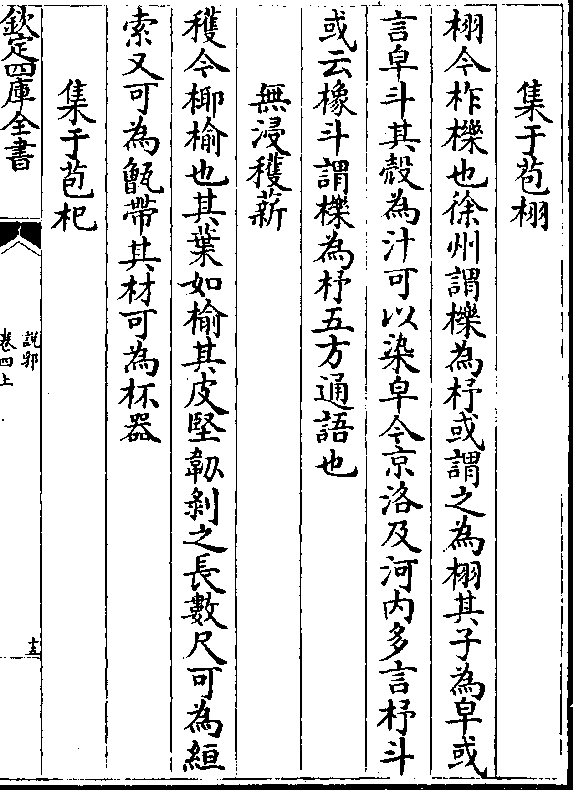 集于苞栩
栩今柞櫟也徐州謂櫟為杼或謂之為栩其子為皁或
言皁斗其殼為汁可以染皁今京洛及河内多言杼斗
或云橡斗謂櫟為杼五方通語也
無浸穫薪
穫今梛榆也其葉如榆其皮堅韌剝之長數尺可為絙
索又可為甑帶其材可為杯器
集于苞杞
欽定四庫全書
說郛
卷四上
十五